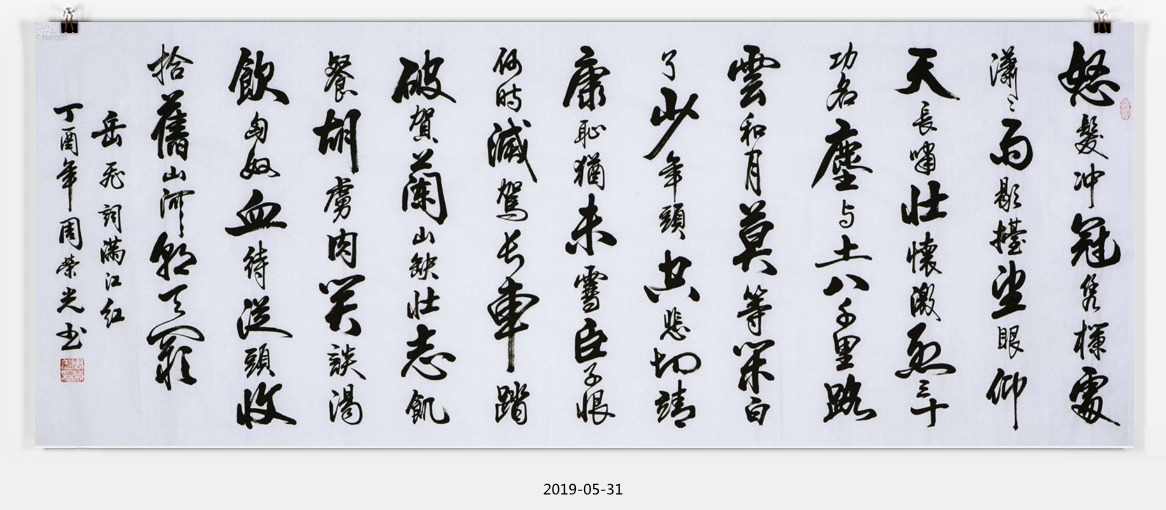 怒髮冲冠凭欄處
瀟〻雨歇擡望眼仰
天長嘯壯懷激烈三十
功名塵与土八千里路
雲和月莫等閑白
了少年頭空悲切靖
康恥猶未雪臣子恨
何時滅駕长車踏
破賀蘭山缺壯志飢
餐胡虜肉笑談渴
飲匈奴血待從頭收
拾舊山河朝天闕
岳飛詞满江红
丁酉年周榮光书
2019-05-31